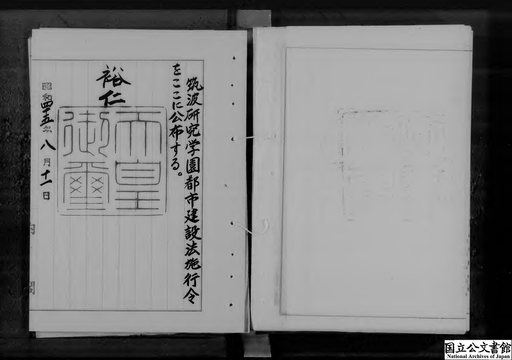 筑波研究学園都市建設法施行令
をここに公布する。
裕仁
天皇
御璽
昭和四十五年八月十一日
内閣
国立公文書館
National Archives of Japan